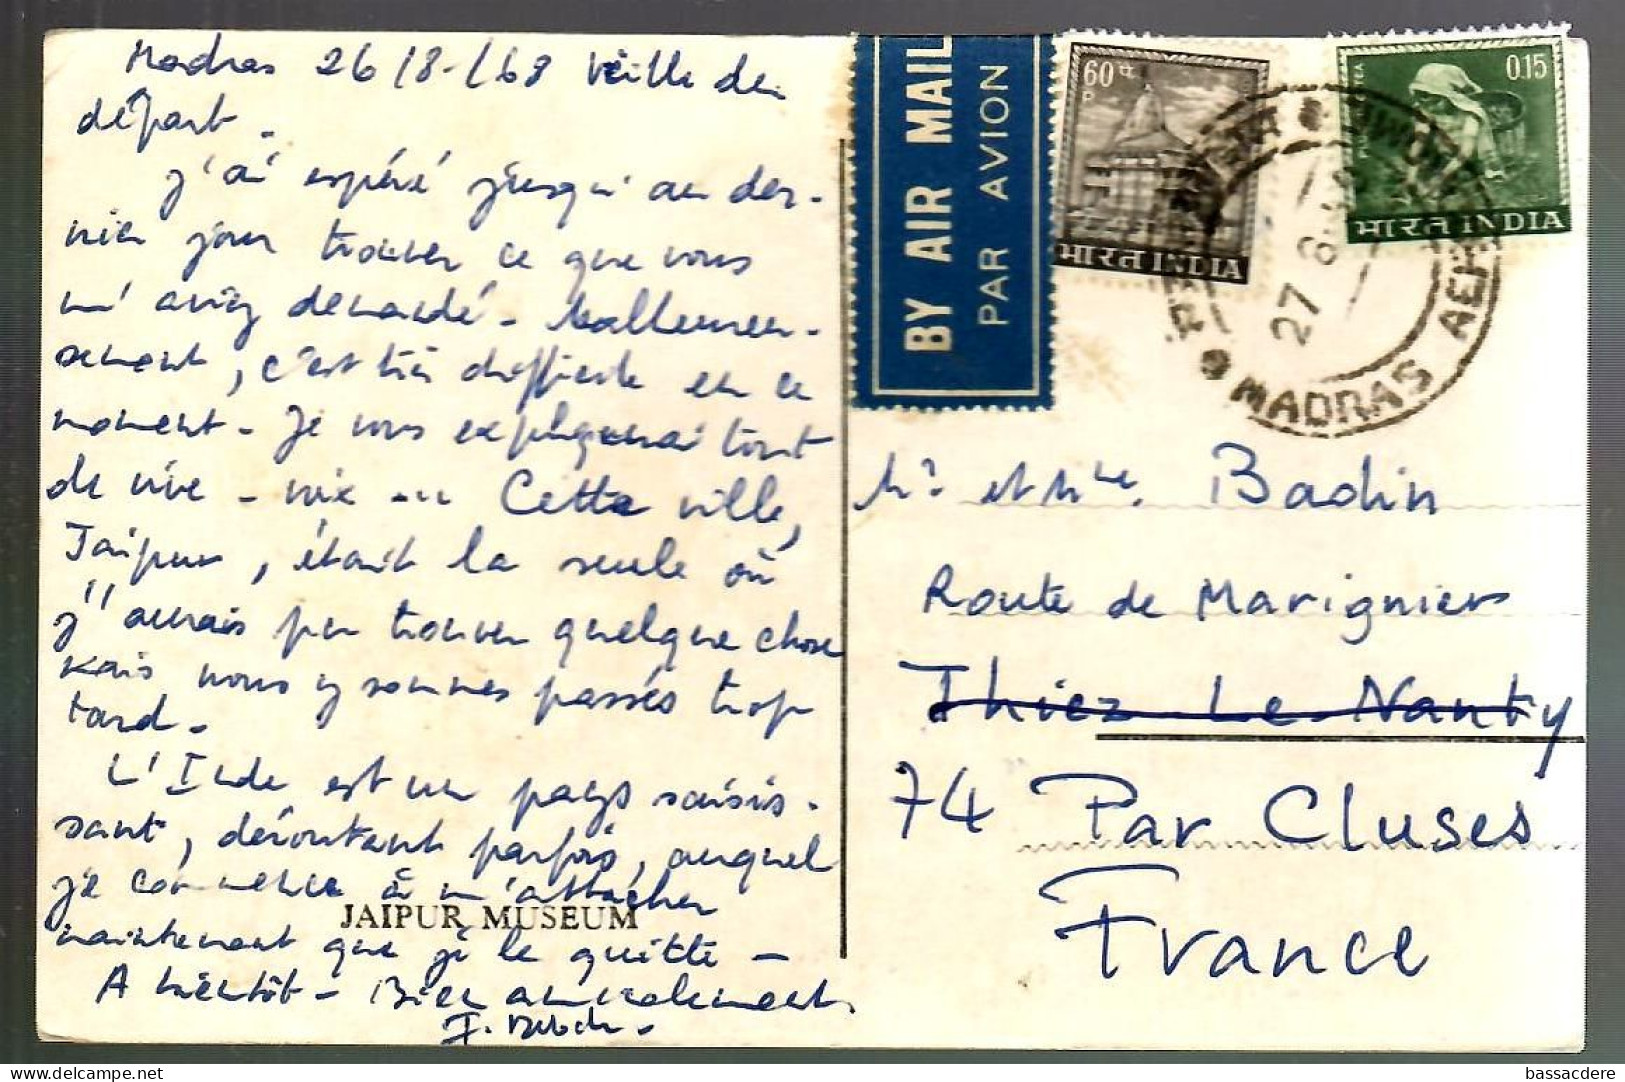 Madras 26/8-/68 Veille du
départ.
j'ai espéré jusqu'au der-
nier jour trouver ce que vous
m'aviez demandé - Malheureu-
sement, c'est très difficile en ce
moment - Je vous expliquerai tout
de vive - voix -- Cette ville,
Jaipur, était la seule où
j'aurais pu trouver quelque chose
mais nous y sommes passés trop
tard -
L'Inde est un pays saisis-
sant, déroutant parfois, auquel
je commence à m'attacher
JAIPUR MUSEUM
maintenant que je le quitte -
A bientôt - Bien amicalement.
BY AIR MAIL
PAR AVION
60 पै
P
भारत INDIA
0.15
भारत INDIA
27 8
MADRAS AER
Mr et Mme. Badin
Route de Marignier
Thiez Le Nanty
74 Par Cluses
France
bassacdere